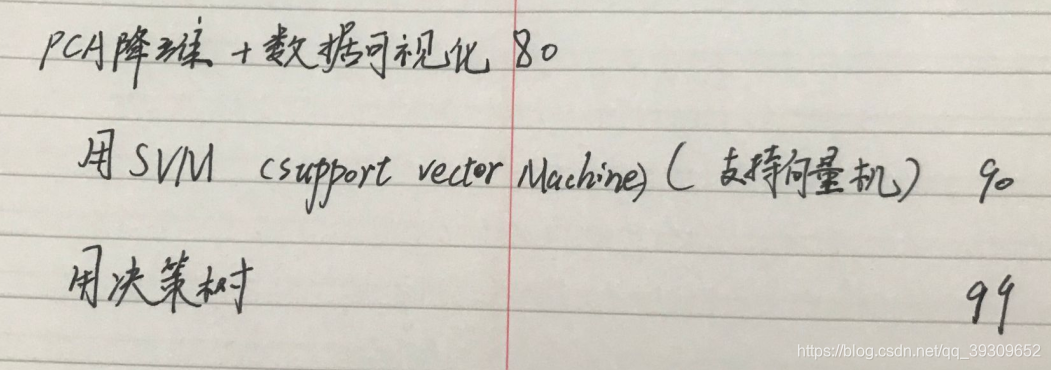 PCA降维 + 数据可视化 80
用SVM (support vector Machine) (支持向量机) 90
用决策树 99
https://blog.csdn.net/qq_39309652